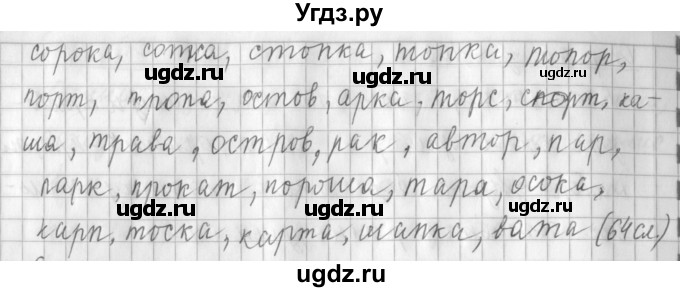 Угдз.ру
сорока, сотка, стопка, топка, топор,
ugdz.ru ugdz.ru
порт, тропа, остов, арка, торс, спорт, ка-
ша, трава, остров, рак, автор, пар,
ugdz.ru ugdz.ru
парк, прокат, пороша, тара, осока,
ugdz.ru ugdz.ru
карп, тоска, карта, шапка, вата (64 сл.)
ugdz.ru